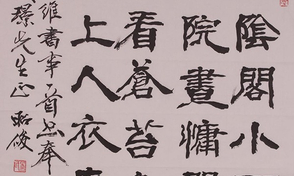 陰閣小
院晝慵
看蒼苔
上人衣
維書事一首奉
先生正